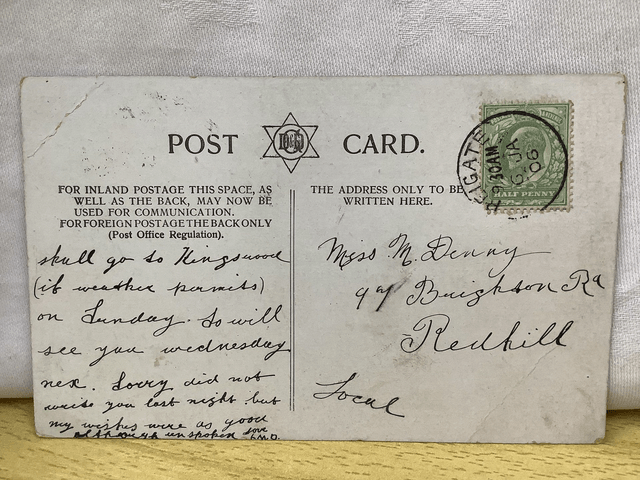 POST CARD.
FOR INLAND POSTAGE THIS SPACE, AS
WELL AS THE BACK, MAY NOW BE
USED FOR COMMUNICATION.
FOR FOREIGN POSTAGE THE BACK ONLY
(Post Office Regulation).
THE ADDRESS ONLY TO BE
WRITTEN HERE.
REIGATE
9.30AM
JA
06
HALF PENNY
shall go to Kingswood
(if weather permits)
on Sunday. So will
see you wednesday
nex. Sorry did not
write you last night but
my wishes were as good
although unspoken love
Miss M. Denny
Brighton Rd
Redhill
Local